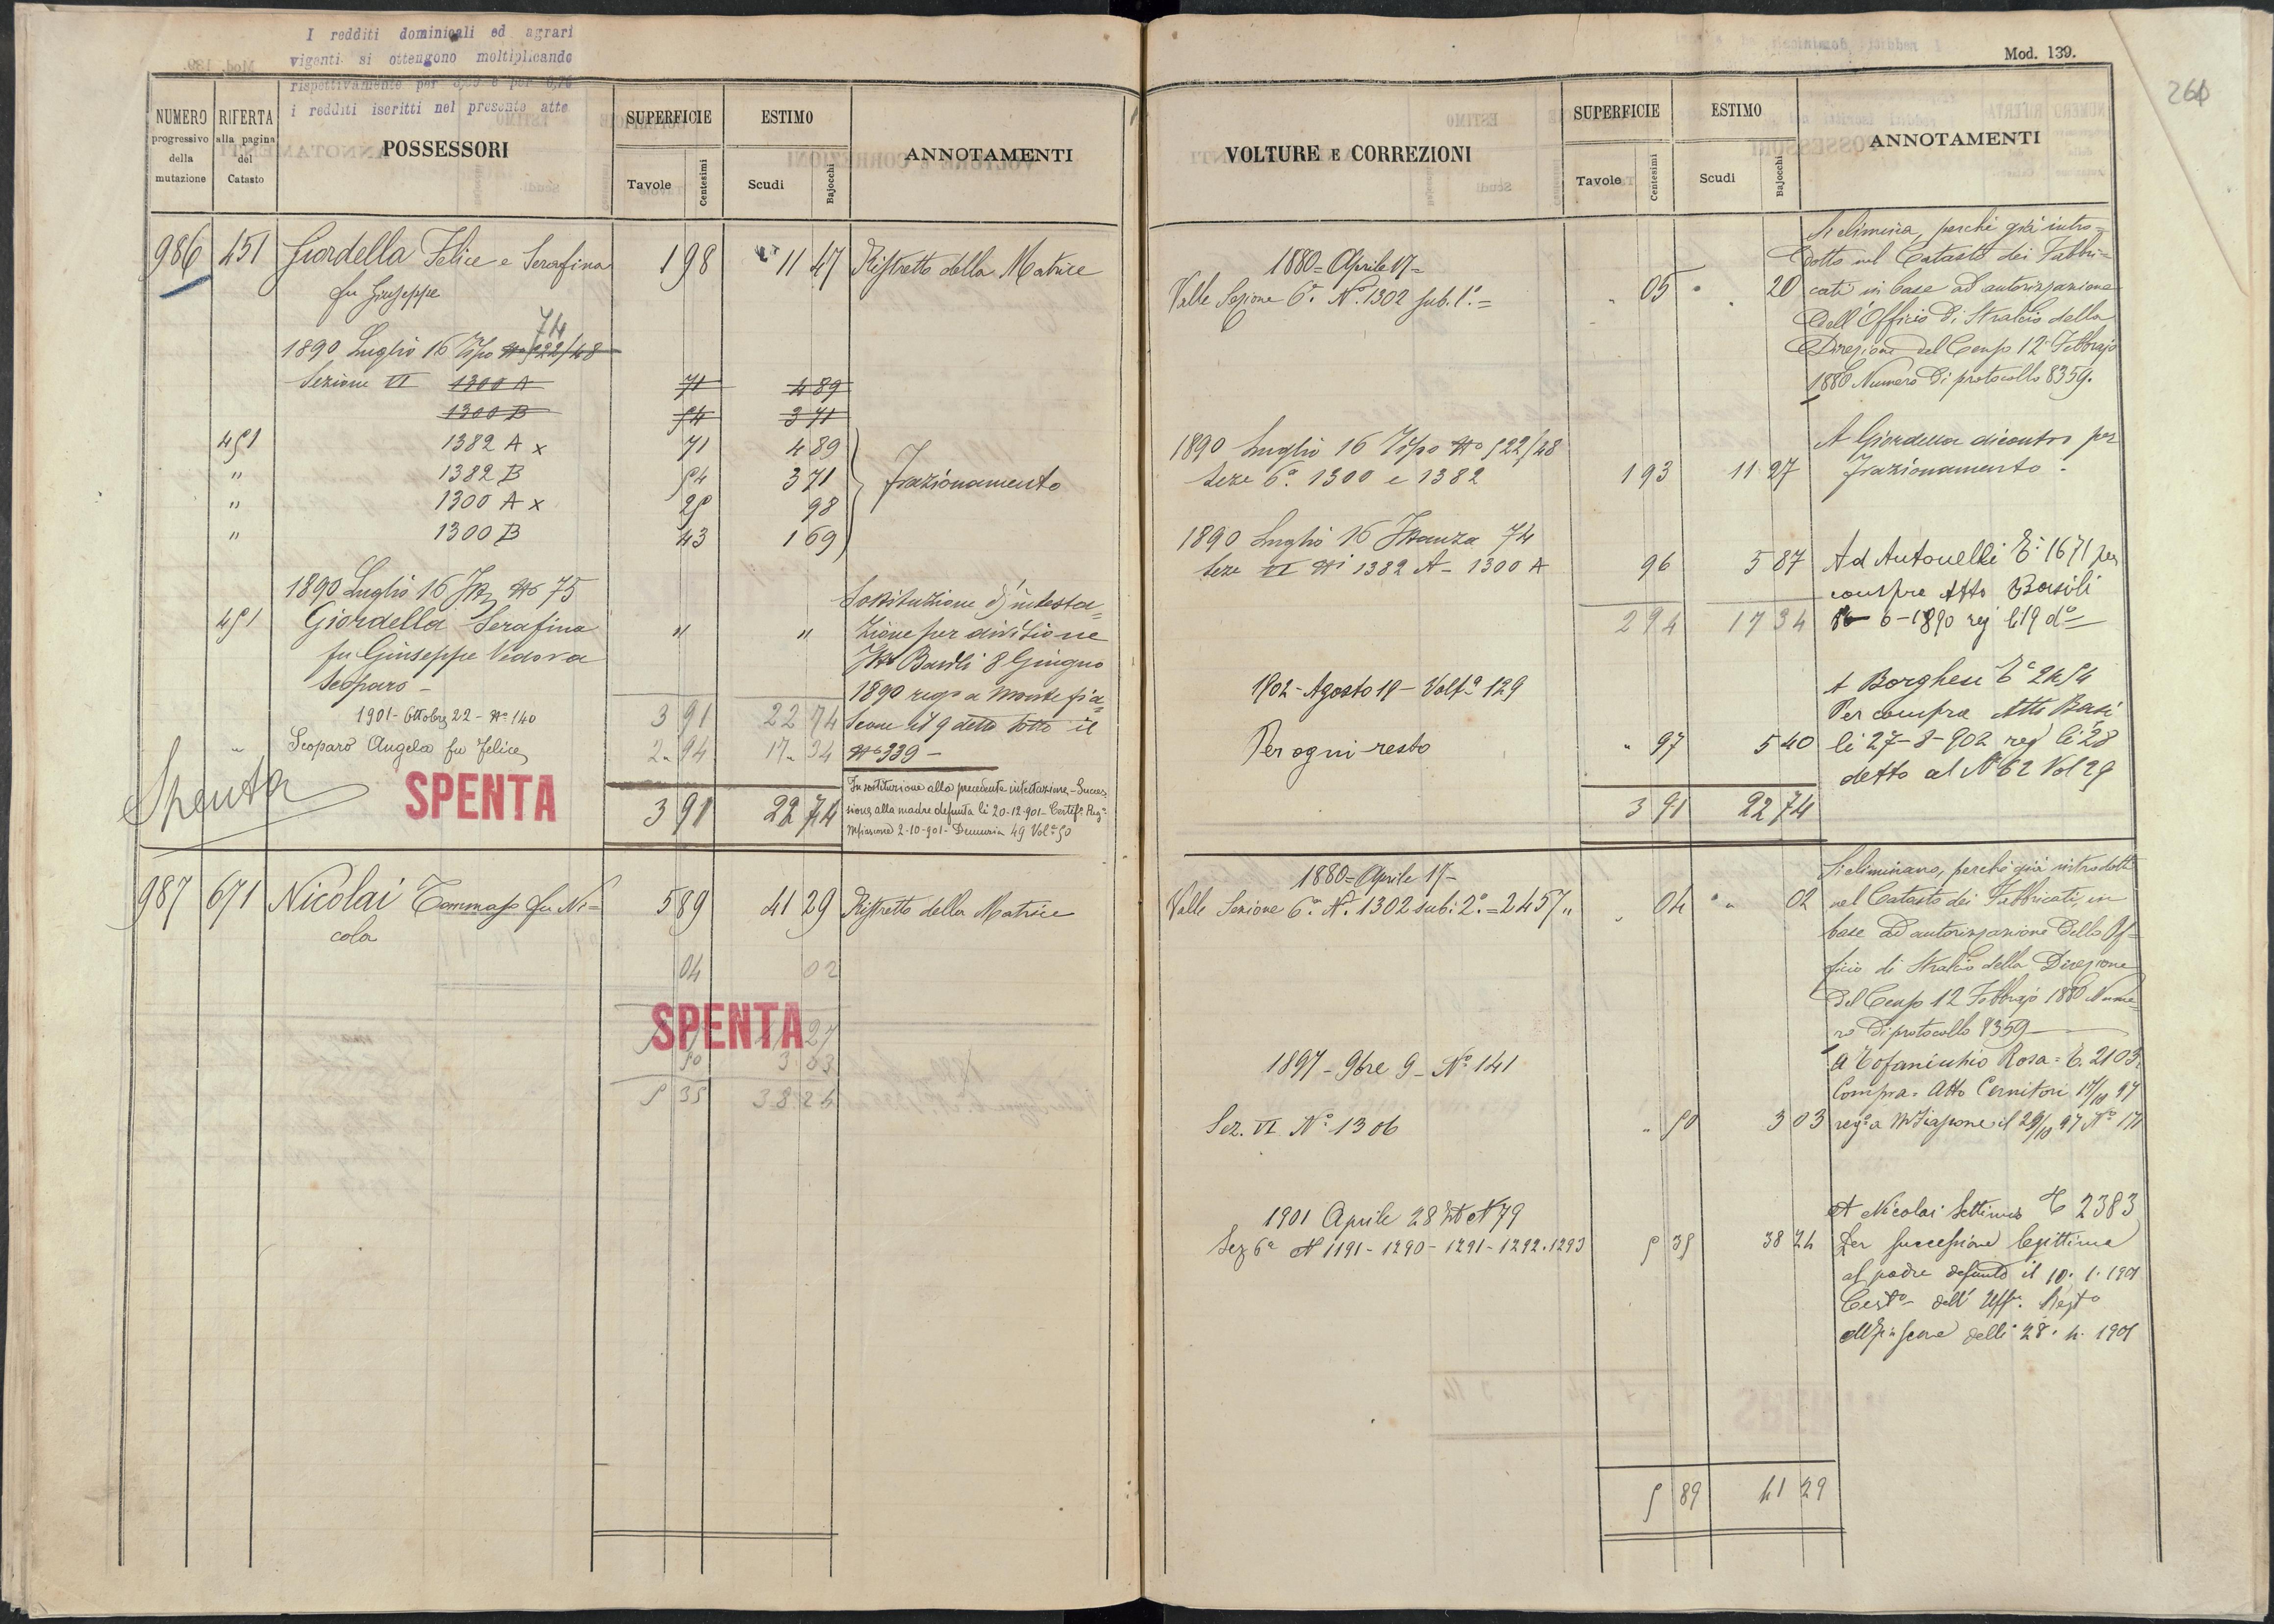 I redditi dominicali ed agrari
vigenti si ottengono moltiplicando
rispettivamente per e per
i redditi iscritti nel presente atto
NUMERO progressivo della mutazione
RIFERTA alla pagina del Catasto
POSSESSORI
SUPERFICIE
Tavole Centesimi
ESTIMO
Scudi Bajocchi
ANNOTAMENTI
986 451 Giordella Felice e Serafina 1 98 11 47 Ristretto della Matrice
fu Giuseppe
74
1890 Luglio 16 Tipo No 522/48
Sezione VI 1300 A 71 4 89
1300 B 54 3 71
451 1382 A x 71 4 89
" 1382 B 54 3 71 Frazionamento
" 1300 A x 25 98
" 1300 B 43 1 69
1890 Luglio 16 No 75
451 Giordella Serafina " "
fu Giuseppe Vedova
Scoparo -
Sostituzione d'intesta=
zione per divisione
Basili 8 Giugno
1890 rego a Montefia=
scone il 9 detto sotto il
No 339 -
1901 - Ottobre 22 - No 140 3 91 22 74
" Scoparo Angela fu Felice 2 94 17 34
Spenta SPENTA
In sostituzione alla precedente intestazione - Succes=
sione alla madre defunta li 20-12-901 - Certifo Rego
Mfiascone 2-10-901 - Denunzia 49 Vole 50
3 91 22 74
987 671 Nicolai Tommaso fu Ni= 5 89 41 29 Ristretto della Matrice
cola
04 02
SPENTA
27
50 3 03
5 35 38 24
Mod. 139.
VOLTURE E CORREZIONI
SUPERFICIE
Tavole Centesimi
ESTIMO
Scudi Bajocchi
ANNOTAMENTI
1880 = Aprile 17 =
Valle Sezione 6a. No. 1302 sub. 1o. = " 05 " 20
Si elimina, perchè già intro=
dotto nel Catasto dei Fabbri=
cati in base ad autorizzazione
dell'Officio di Stralcio della
Direzione del Censo 12 Febbrajo
1880 Numero di protocollo 8359.
1890 Luglio 16 Tipo No 522/48
Seze 6a. 1300 e 1382 1 93 11 27
A Giordella dicontro per
frazionamento -
1890 Luglio 16 Istanza 74
Seze VI Ni 1382 A - 1300 A 96 5 87
Ad Antonelli Ea 1671 per
compra Atto Basili
6-1890 reg li 19 do
2 94 17 34
1902 - Agosto 19 - Volta 129
Per ogni resto " 97 5 40
A Borghesi Ea 2454
Per compra Atto Basi
li 27-8-902 reg li 28
detto al No 62 Vol 29
3 91 22 74
1880 = Aprile 17 -
Valle Sezione 6a. No. 1302 sub: 2o. = 2457 " " 04 " " 02
Si eliminano, perchè già introdotti
nel Catasto dei Fabbricati, in
base ad autorizzazione dello Of=
ficio di Stralcio della Direzione
del Censo 12 Febbrajo 1880 Nume=
ro di protocollo 8359
1897 - 9bre 9 - No 141
Sez. VI No 1306 " 50 3 03
A Tofanicchio Rosa = E. 2103
Compra = Atto Cernitori 17/10 97
rego a Mfiascone il 29/10 97 No 171
1901 Aprile 28 N 79
Sez 6a N 1191 - 1290 - 1291 - 1292 - 1293 5 35 38 24
A Nicolai Settimio E 2383
Per successione legittima
al padre defunto il 10. 1. 1901
Certo dell' Uffo. Regto
Mfiascone delli 28. 4. 1901
5 89 41 29